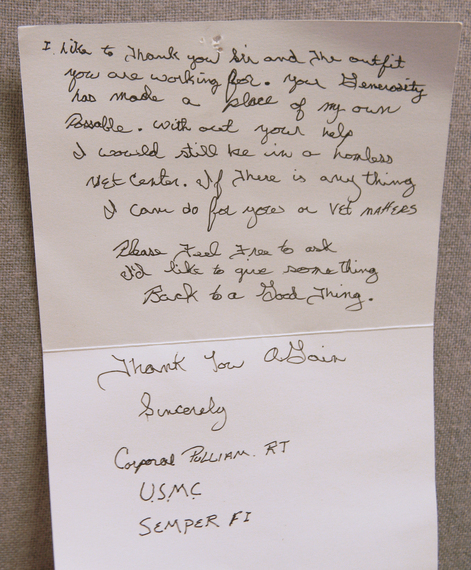 I like to Thank you Sir and The outfit
you are working for. your Generosity
has made a place of my own
Possable. with out your help
I would still be in a homless
Vet Center. If There is any thing
I can do for you or Vet matters
Please Feel Free to ask
I'd like to give some thing
Back to a Good Thing.
Thank You AGain
Sincerely
Corporal PULLIAM. RT
U.S.M.C
SEMPER FI